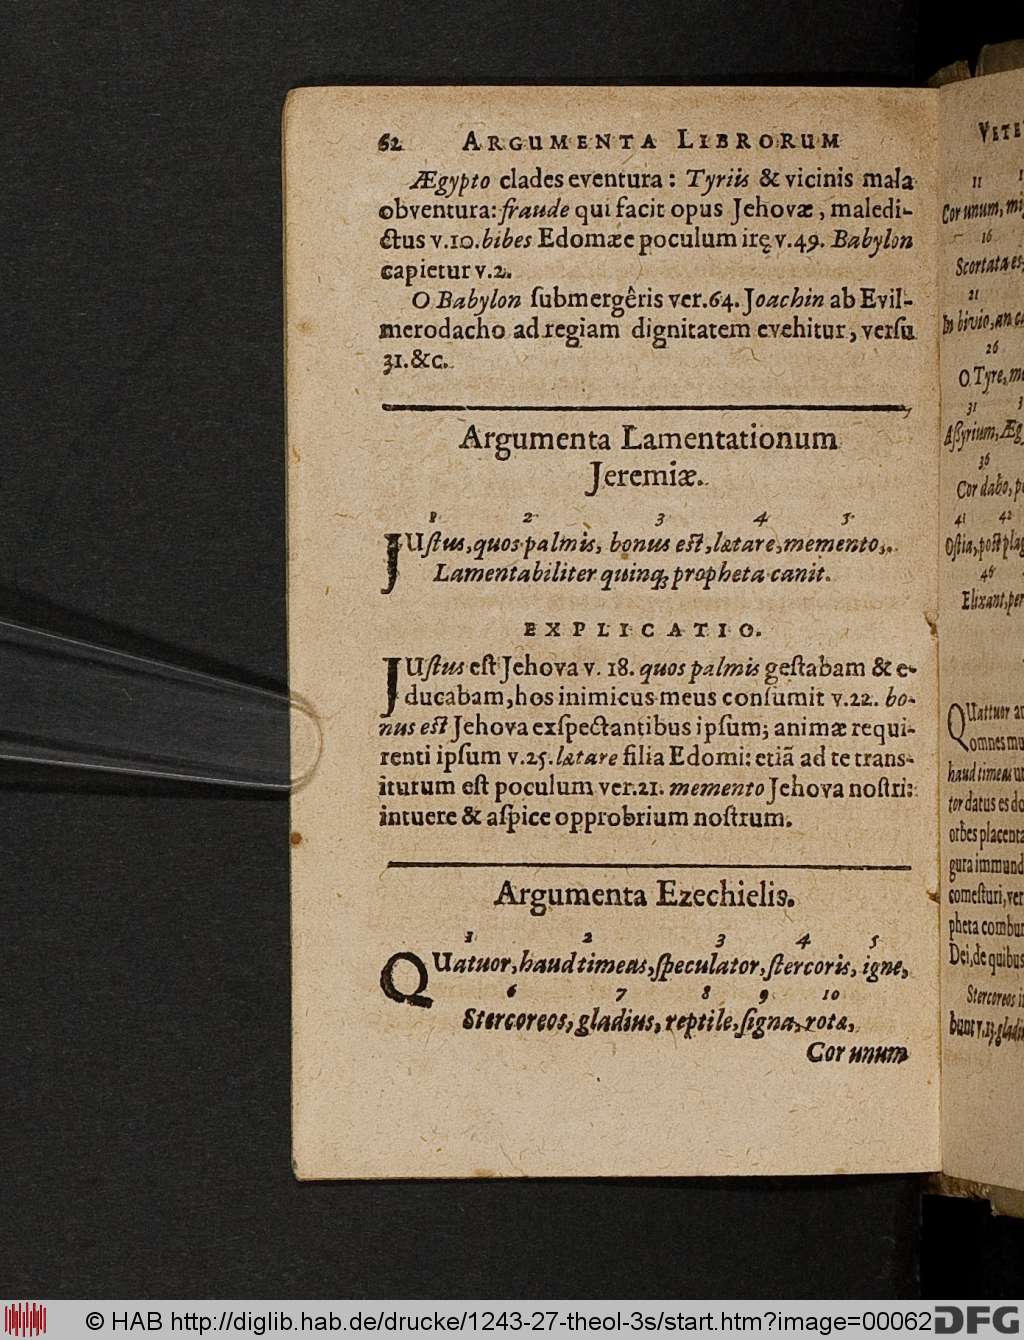 62 ARGUMENTA LIBRORUM
Ægypto clades eventura: Tyriis & vicinis mala
obventura: fraude qui facit opus Jehovæ, maledi-
ctus v.10. bibes Edomæe poculum irę v.49. Babylon
capietur v.2.
O Babylon submergêris ver.64. Joachin ab Evil-
merodacho ad regiam dignitatem evehitur, versu
31. &c.
Argumenta Lamentationum
Jeremiæ.
1 2 3 4 5
JUstus, quos palmis, bonus est, lætare, memento,
Lamentabiliter quinq; propheta canit.
EXPLICATIO.
JUstus est Jehova v. 18. quos palmis gestabam & e-
ducabam, hos inimicus meus consumit v.22. bo-
nus est Jehova exspectantibus ipsum; animæ requi-
renti ipsum v.25. lætare filia Edomi: etiã ad te trans-
iturum est poculum ver.21. memento Jehova nostri:
intuere & aspice opprobrium nostrum.
Argumenta Ezechielis.
1 2 3 4 5
QUatuor, haud timeas, speculator, stercoris, igne,
6 7 8 9 10
Stercoreos, gladius, reptile, signa, rotæ,
Cor unum
VETE
11
Cor unum, mi
16
Scortata es
21
In bivio, an ca
26
O Tyre, me
31
Aßyrium, Æg
36
Cor dabo, p
41 42
Ostia, post plag
46
Elixant, per
QUattuor an
omnes mu
haud timeas ut
tor datus es do
orbes placenta
gura immund
comesturi, ver
pheta combur
Dei, de quibus
Stercoreos i
bunt v.13. gladi
© HAB http://diglib.hab.de/drucke/1243-27-theol-3s/start.htm?image=00062
DFG